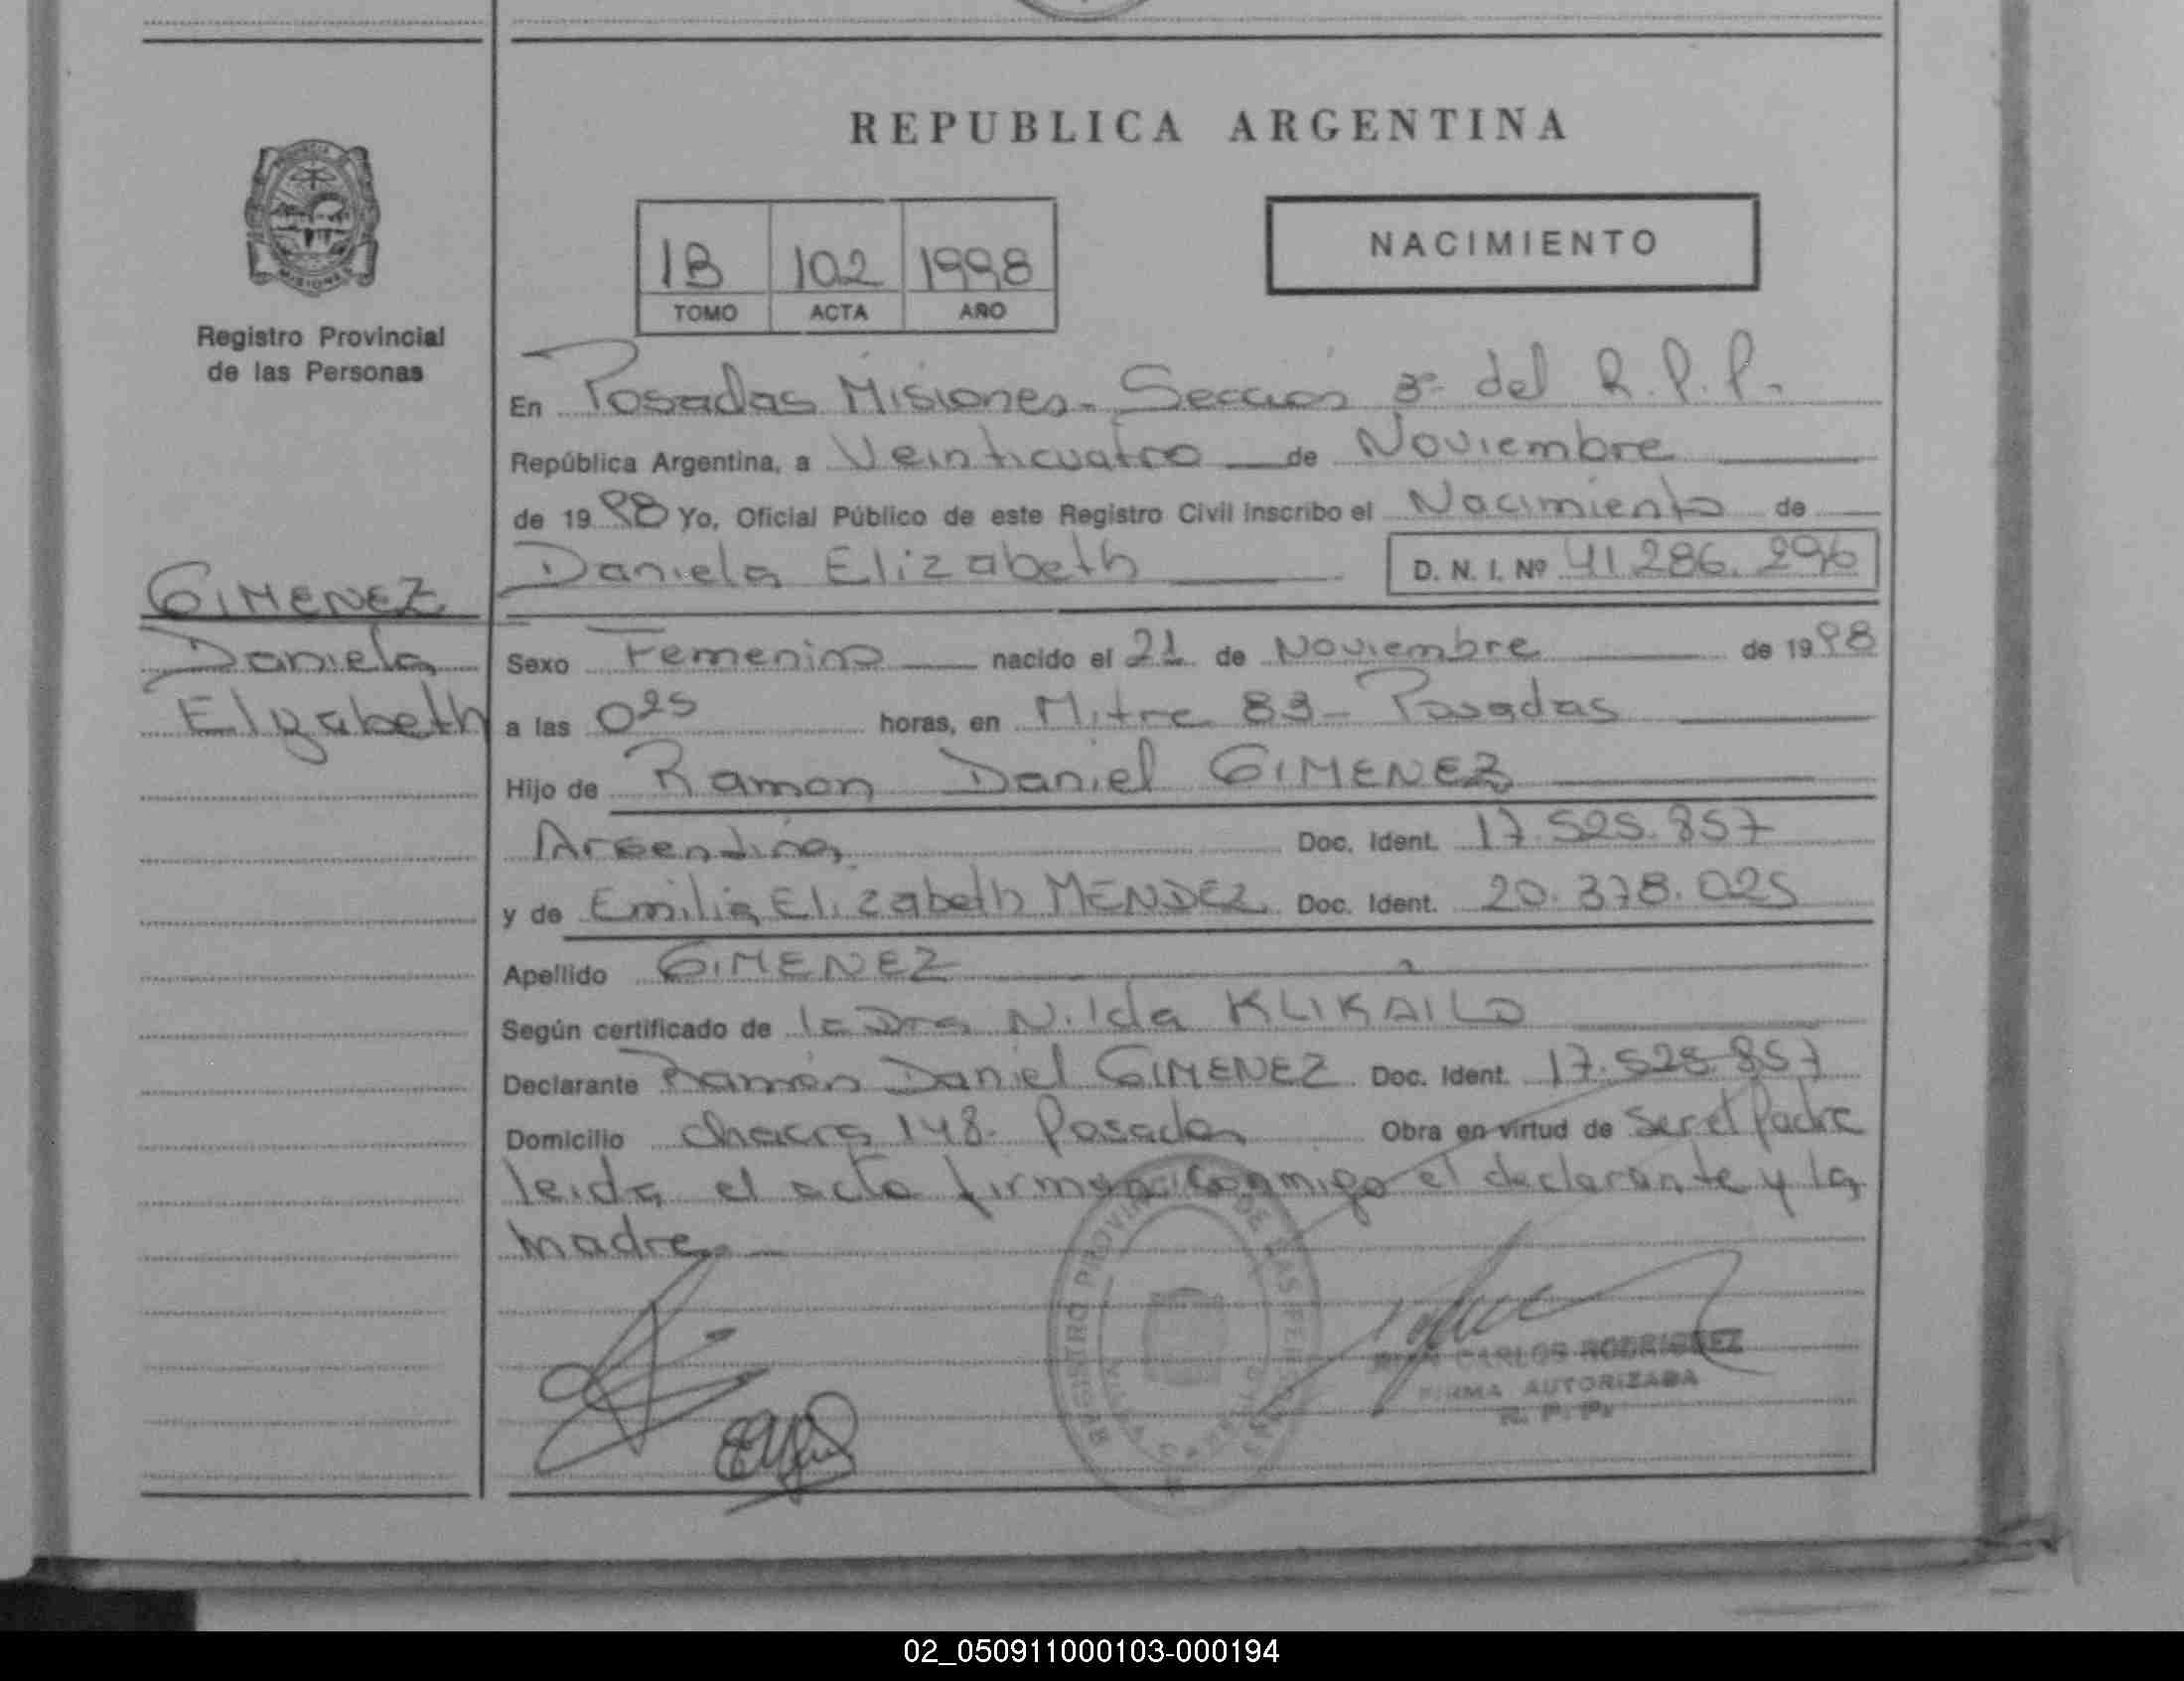 REPUBLICA ARGENTINA
1B 102 1998
TOMO ACTA AÑO
NACIMIENTO
MISIONES
Registro Provincial
de las Personas
GIMENEZ
Daniela
Elizabeth
En Posadas Misiones - Sección 3ª del R.P.P.
República Argentina, a Veinticuatro de Noviembre
de 1998 Yo, Oficial Público de este Registro Civil inscribo el Nacimiento de
Daniela Elizabeth D. N. I. Nº 41.286.296
Sexo Femenino nacido el 21 de Noviembre de 1998
a las 0 25 horas, en Mitre 83 - Posadas
Hijo de Ramon Daniel GIMENEZ
Argentina Doc. Ident. 17.525.857
y de Emilia Elizabeth MENDEZ Doc. Ident. 20.378.025
Apellido GIMENEZ
Según certificado de la Dra Nilda KLIKAILO
Declarante Ramón Daniel GIMENEZ Doc. Ident. 17.525.857
Domicilio chacra 148 - Posadas Obra en virtud de Ser el Padre
leida el acta firman conmigo el declarante y la
madre.
REGISTRO PROVINCIAL DE LAS PERSONAS
JUAN CARLOS RODRIGUEZ
FIRMA AUTORIZADA
R. P. P.
02_050911000103-000194